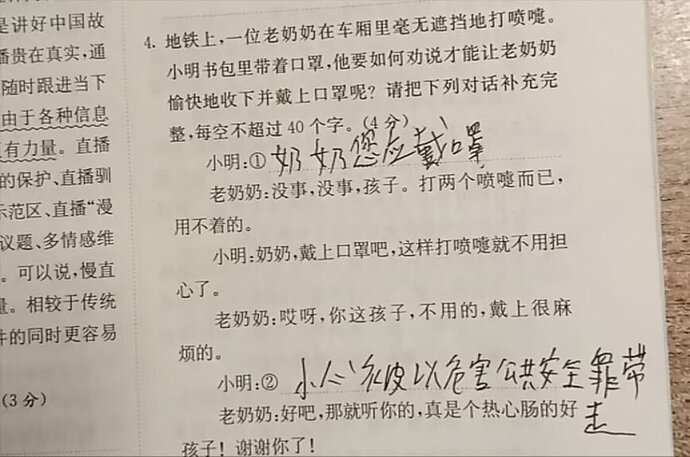 是讲好中国故
播贵在真实，通
随时跟进当下
由于各种信息
有力量。直播
的保护、直播驯
示范区、直播“漫
议题、多情感维
。可以说，慢直
量。相较于传统
件的同时更容易
（3 分）
4. 地铁上，一位老奶奶在车厢里毫无遮挡地打喷嚏。
小明书包里带着口罩，他要如何劝说才能让老奶奶
愉快地收下并戴上口罩呢？请把下列对话补充完
整，每空不超过 40 个字。（4 分）
小明：① 奶奶您应戴口罩
老奶奶：没事，没事，孩子。打两个喷嚏而已，
用不着的。
小明：奶奶，戴上口罩吧，这样打喷嚏就不用担
心了。
老奶奶：哎呀，你这孩子，不用的，戴上很麻
烦的。
小明：② 小心被以危害公共安全罪带
走
老奶奶：好吧，那就听你的，真是个热心肠的好
孩子！谢谢你了！